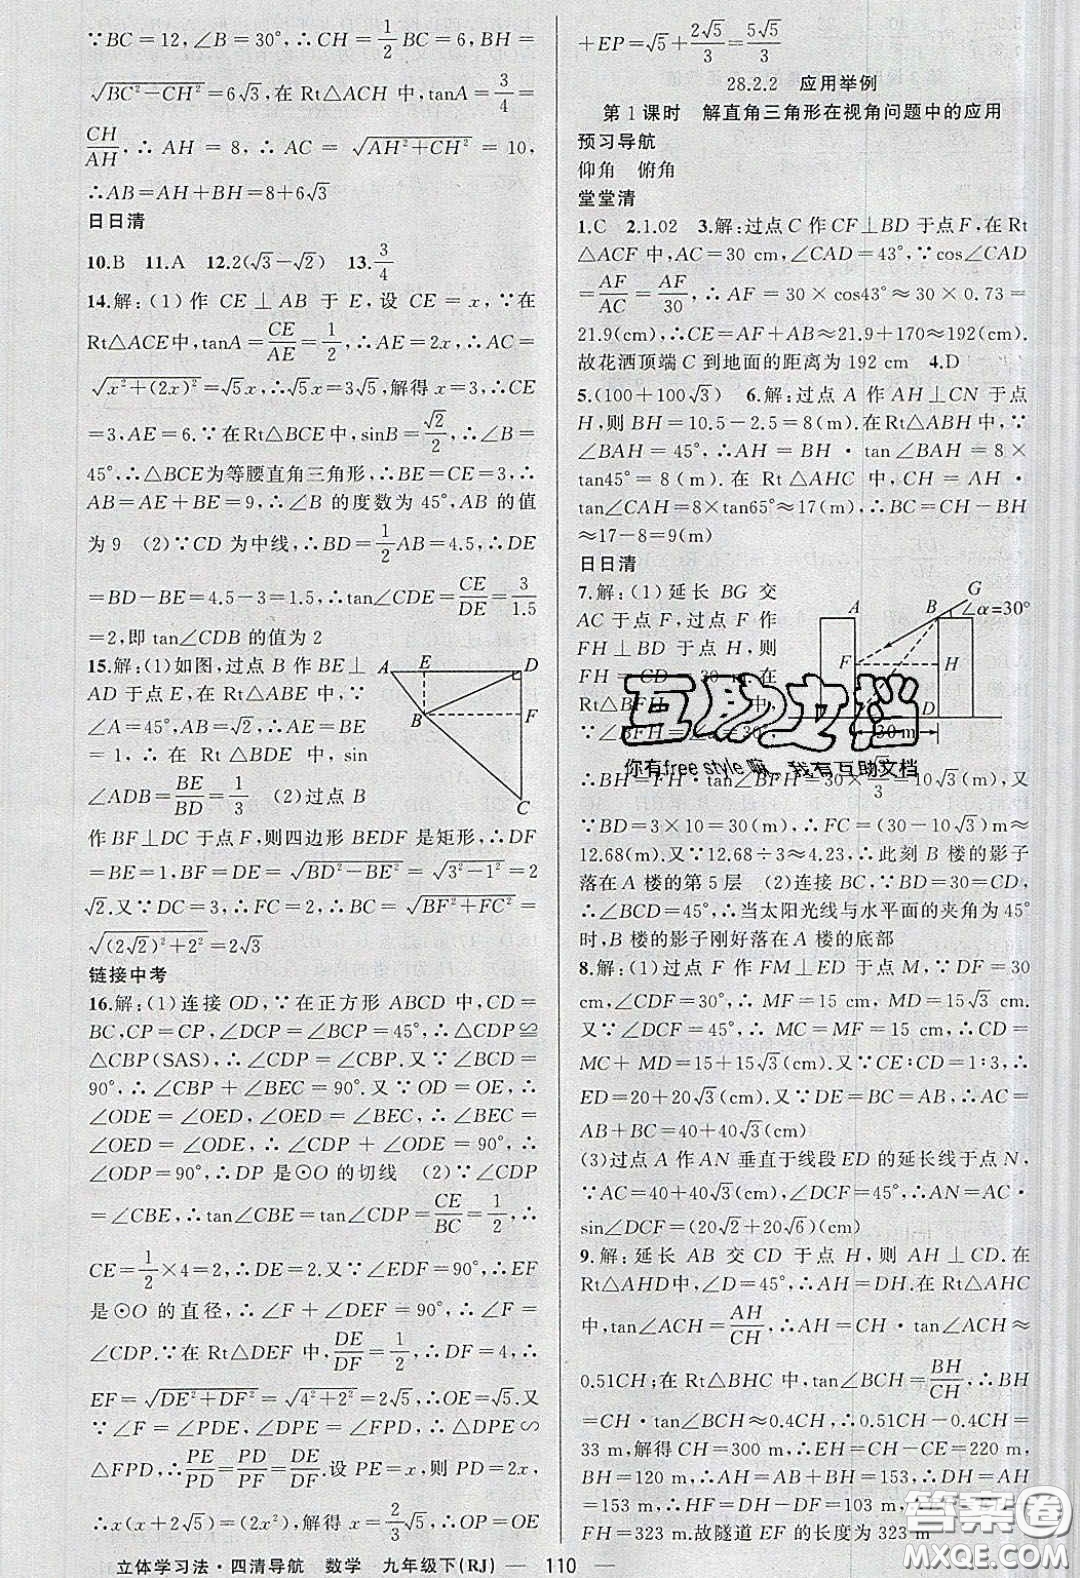 ∵BC=12,∠B=30°,∴CH=1/2 BC=6,BH=
√(BC²-CH²)=6√3,在Rt△ACH中,tanA=3/4
=CH/AH,∴AH=8,∴AC=√(AH²+CH²)=10,
∴AB=AH+BH=8+6√3
日日清
10.B 11.A 12.2(√3-√2) 13.3/4
14.解:(1)作CE⊥AB于E,设CE=x,∵在
Rt△ACE中,tanA=CE/AE=1/2,∴AE=2x,∴AC=
√(x²+(2x)²)=√5x,∴√5x=3√5,解得x=3,∴CE
=3,AE=6.∵在Rt△BCE中,sinB=√2/2,∴∠B=
45°,∴△BCE为等腰直角三角形,∴BE=CE=3,∴
AB=AE+BE=9,∴∠B的度数为45°,AB的值
为9 (2)∵CD为中线,∴BD=1/2AB=4.5,∴DE
=BD-BE=4.5-3=1.5,∴tan∠CDE=CE/DE=3/1.5
=2,即tan∠CDB的值为2
15.解:(1)如图,过点B作BE⊥
AD于点E,在Rt△ABE中,∵
∠A=45°,AB=√2,∴AE=BE
=1,∴在Rt△BDE中,sin
∠ADB=BE/BD=1/3 (2)过点B
A E D B F C
作BF⊥DC于点F,则四边形BEDF是矩形,∴DF
=BE=1,BF=DE=√(BD²-BE²)=√(3²-1²)=2
√2.又∵DC=3,∴FC=2,∴BC=√(BF²+FC²)=
√((2√2)²+2²)=2√3
链接中考
16.解:(1)连接OD,∵在正方形ABCD中,CD=
BC,CP=CP,∠DCP=∠BCP=45°,∴△CDP≌
△CBP(SAS),∴∠CDP=∠CBP.又∵∠BCD=
90°,∴∠CBP+∠BEC=90°.又∵OD=OE,∴
∠ODE=∠OED,∠OED=∠BEC,∴∠BEC=
∠OED=∠ODE,∴∠CDP+∠ODE=90°,∴
∠ODP=90°,∴DP是⊙O的切线 (2)∵∠CDP
=∠CBE,∴tan∠CBE=tan∠CDP=CE/BC=1/2,∴
CE=1/2×4=2,∴DE=2.又∵∠EDF=90°,∴EF
是⊙O的直径,∴∠F+∠DEF=90°,∴∠F=
∠CDP.在Rt△DEF中,DE/DF=1/2,∴DF=4,∴
EF=√(DE²+DF²)=√(4²+2²)=2√5,∴OE=√5.又
∵∠F=∠PDE,∠DPE=∠FPD,∴△DPE∽
△FPD,∴PE/PD=PD/PF=DE/DF.设PE=x,则PD=2x,
∴x(x+2√5)=(2x²),解得x=2/3√5,∴OP=OE
+EP=√5+2√5/3=5√5/3
28.2.2 应用举例
第1课时 解直角三角形在视角问题中的应用
预习导航
仰角 俯角
堂堂清
1.C 2.1.02 3.解:过点C作CF⊥BD于点F,在Rt
△ACF中,AC=30 cm,∠CAD=43°,∵cos∠CAD
=AF/AC=AF/30,∴AF=30×cos43°≈30×0.73=
21.9(cm),∴CE=AF+AB≈21.9+170≈192(cm).
故花洒顶端C到地面的距离为192 cm 4.D
5.(100+100√3) 6.解:过点A作AH⊥CN于点
H,则BH=10.5-2.5=8(m).在Rt△ABH中,∵
∠BAH=45°,∴AH=BH·tan∠BAH=8×
tan45°=8(m).在Rt△AHC中,CH=AH·
tan∠CAH=8×tan65°≈17(m),∴BC=CH-BH
≈17-8=9(m)
日日清
7.解:(1)延长BG交
AC于点F,过点F作
FH⊥BD于点H,则
FH=CD=30 m.在
Rt△BFH中,∵
∠BFH=∠α=30°,
A B G ∠α=30° F H D 30 m
互助文档
你有free style嘛,我有互助文档
∴BH=FH·tan∠BFH=30×√3/3=10√3(m),又
∵BD=3×10=30(m),∴FC=(30-10√3)m≈
12.68(m).又∵12.68÷3≈4.23,∴此刻B楼的影子
落在A楼的第5层 (2)连接BC,∵BD=30=CD,
∴∠BCD=45°,∴当太阳光线与水平面的夹角为45°
时,B楼的影子刚好落在A楼的底部
8.解:(1)过点F作FM⊥ED于点M,∵DF=30
cm,∠CDF=30°,∴MF=15 cm,MD=15√3 cm.
又∵∠DCF=45°,∴MC=MF=15 cm,∴CD=
MC+MD=15+15√3(cm).又∵CE:CD=1:3,∴
ED=20+20√3(cm).又∵DE=BC=AB,∴AC=
AB+BC=40+40√3(cm)
(3)过点A作AN垂直于线段ED的延长线于点N,
∵AC=40+40√3(cm),∠DCF=45°,∴AN=AC·
sin∠DCF=(20√2+20√6)(cm)
9.解:延长AB交CD于点H,则AH⊥CD.在
Rt△AHD中,∠D=45°,∴AH=DH.在Rt△AHC
中,tan∠ACH=AH/CH,∴AH=CH·tan∠ACH≈
0.51CH;在Rt△BHC中,tan∠BCH=BH/CH,∴BH
=CH·tan∠BCH≈0.4CH,∴0.51CH-0.4CH=
33 m,解得CH=300 m,∴EH=CH-CE=220 m,
BH=120 m,∴AH=AB+BH=153,∴DH=AH
=153 m,∴HF=DH-DF=103 m,
FH=323 m.故隧道EF的长度为323 m
答案圈
MXQE.COM
立体学习法·四清导航 数学 九年级下(RJ) — 110 —